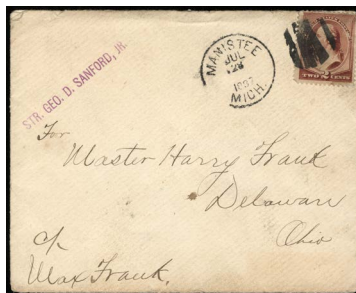 STR. GEO. D. SANFORD, JR.
MANISTEE
JUL
MICH.
TWO CENTS
For
Master Harry Frank
Delaware
Ohio
c/o
Max Frank.